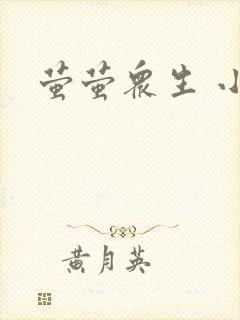 萤萤众生 小
黄月英